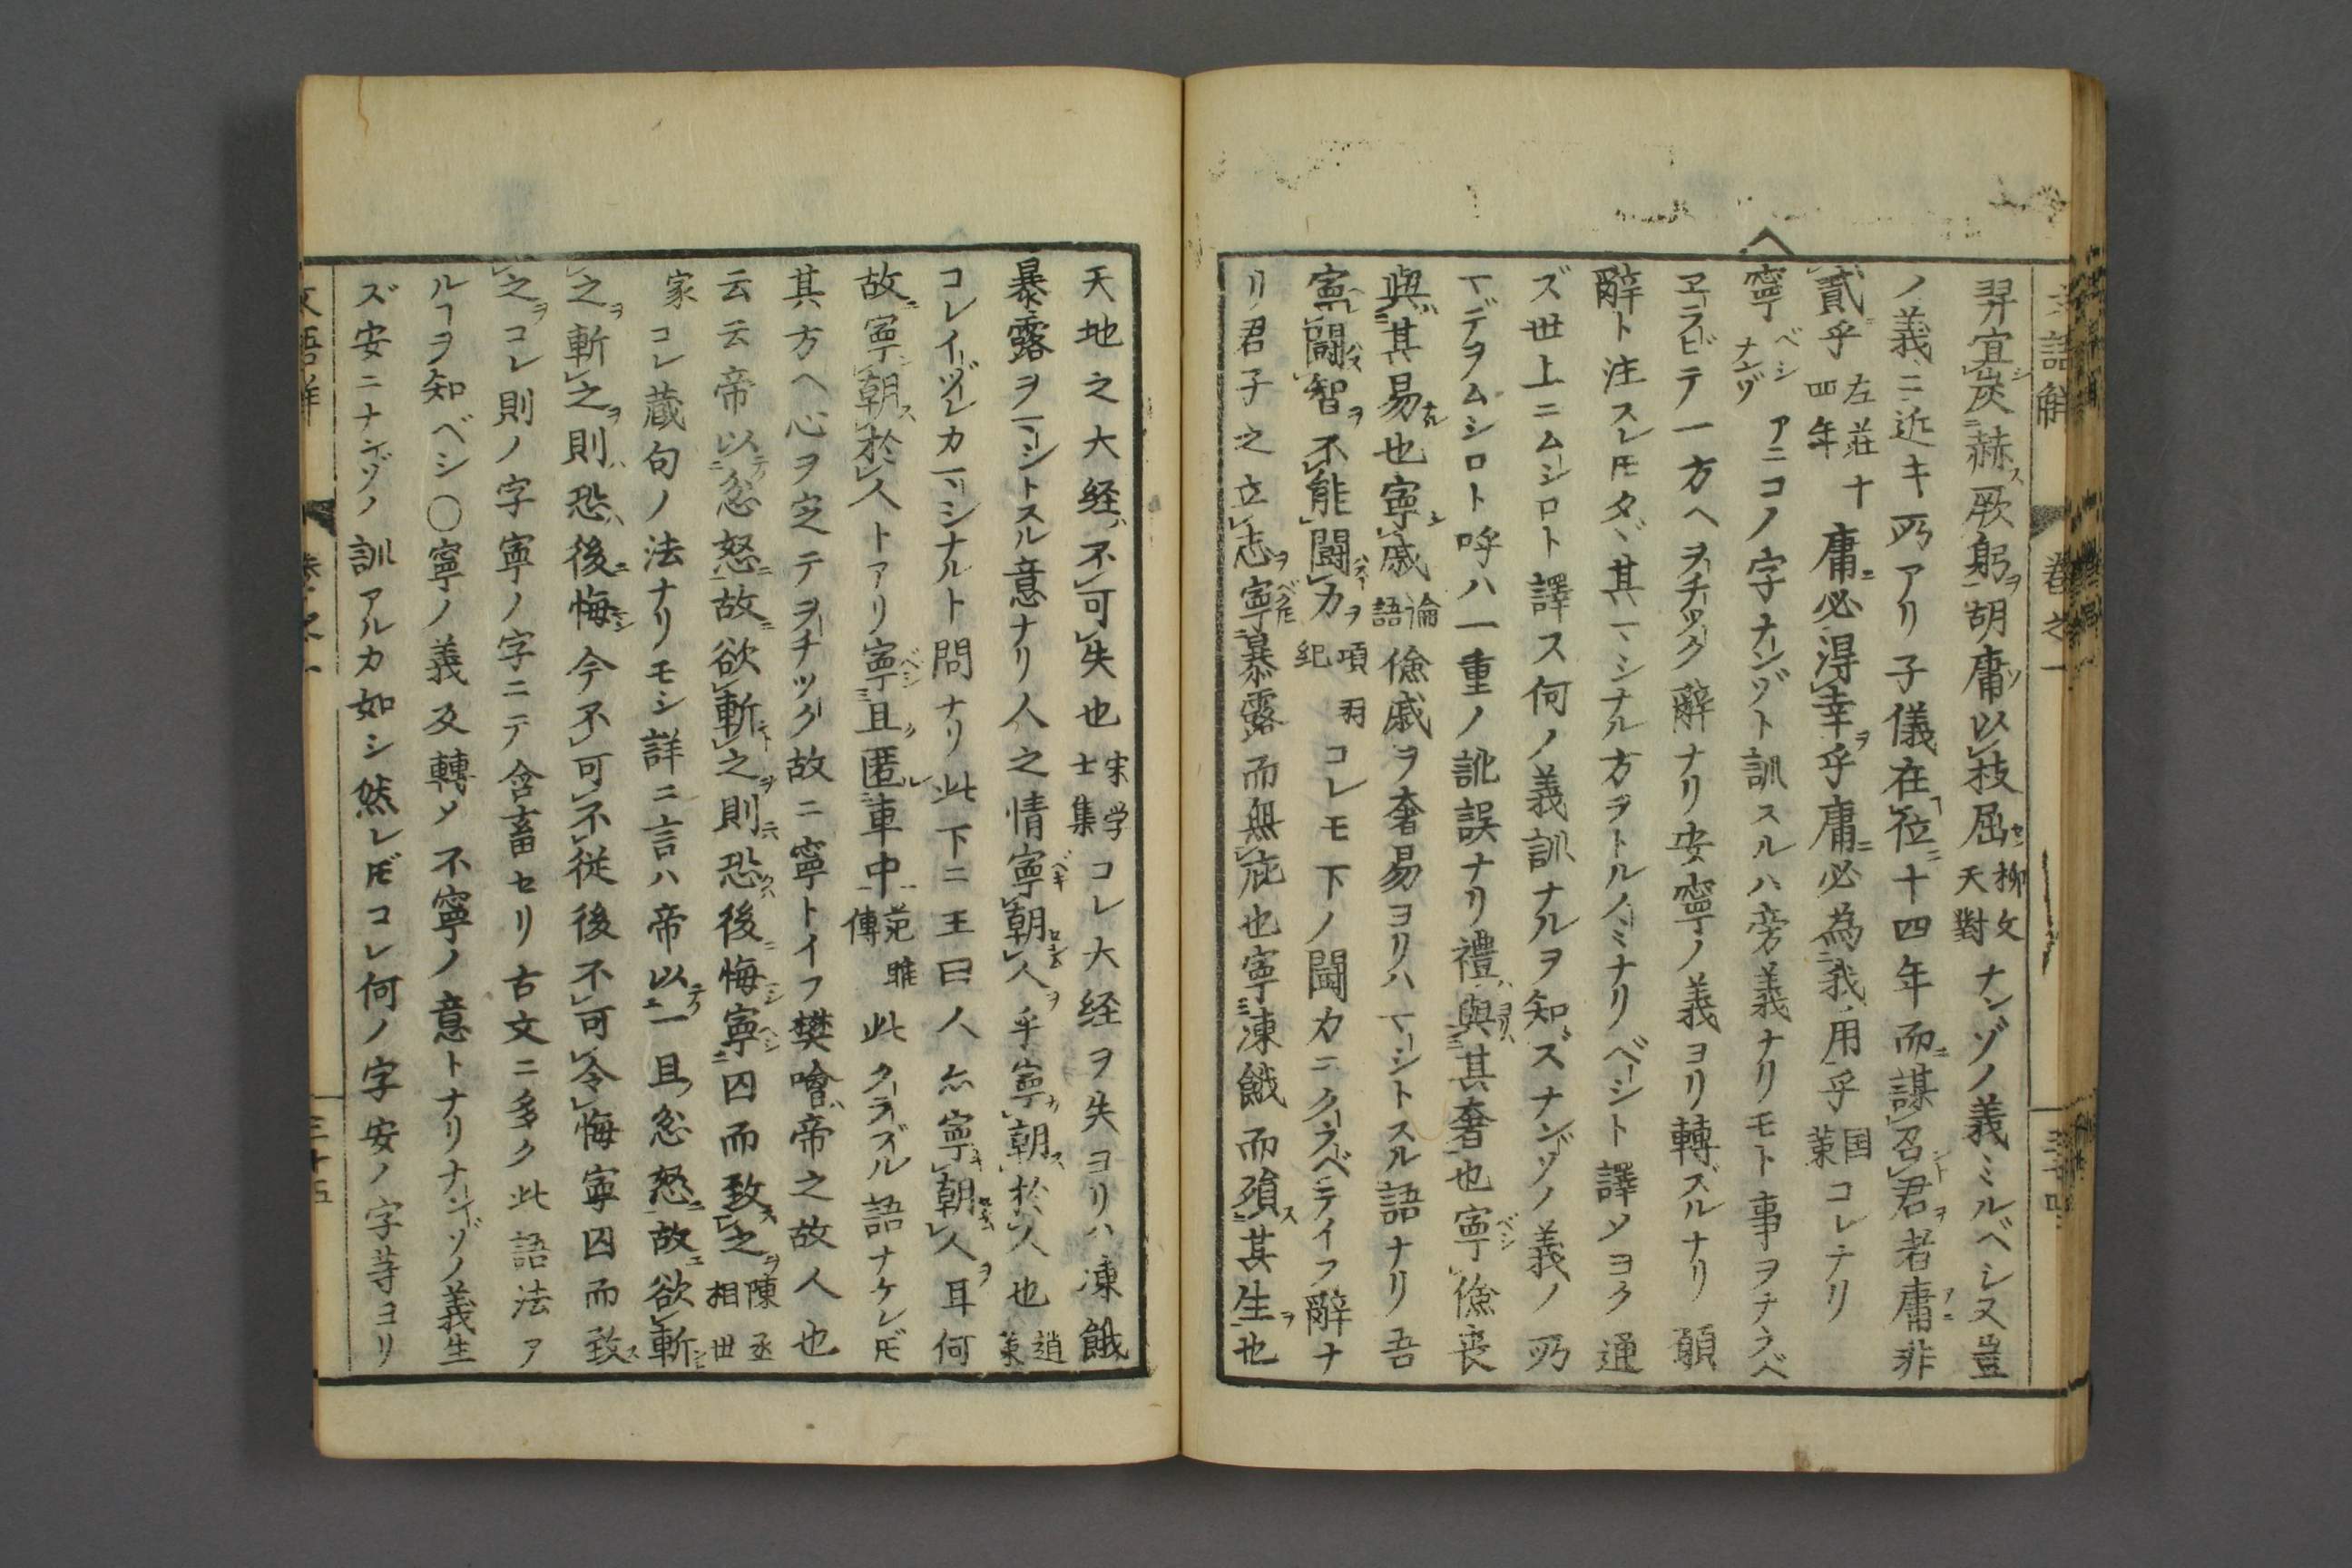 文語解 卷之一 三十四
羿宜炭赫厥躬胡庸以枝屈柳文天對ナンゾノ義ミルベシ又豈
ノ義ニ近キ所アリ子儀在位十四年而謀召君者庸非
貳乎左莊十四年庸必得幸乎庸必為我用乎国策コレナリ
寧ベシナンゾ アニコノ字ナンゾト訓スルハ旁義ナリモト事ヲナラベ
ヱラビテ一方ヘヲチツク辭ナリ安寧ノ義ヨリ轉ズルナリ願
辭ト注スレ𪜈タヾ其マシナル方ヲトルノミナリベシト譯メヨク通
ズ世上ニムシロト譯ス何ノ義訓ナルヲ知ズナンゾノ義ノ所
マデヲムシロト呼ハ一重ノ訛誤ナリ禮與其奢也寧儉喪
與其易也寧戚論語儉戚ヲ奢易ヨリハマシトスル語ナリ吾
寧鬪智不能鬪力項羽紀コレモ下ノ鬪力ニクラベテイフ辭ナ
リ君子之立志寧暴露而無庇也寧凍餓而殞其生也
天地之大経不可失也宋学士集コレ大経ヲ失ヨリハ凍餓
暴露ヲマシトスル意ナリ人之情寧朝人乎寧朝於人也趙策
コレイヅレカマシナルト問ナリ此下ニ王曰人亦寧朝人耳何
故寧朝於人トアリ寧且匿車中范雎傳此クラブル語ナケレ𪜈
其方ヘ心ヲ定テヲチツク故ニ寧トイフ樊噲帝之故人也
云云帝以忿怒故欲斬之則恐後悔寧囚而致之陳丞相世
家コレ蔵句ノ法ナリモシ詳ニ言ハ帝以一旦忿怒故欲斬
之斬之則恐後悔今不可不従後不可令悔寧囚而致
之コレ則ノ字寧ノ字ニテ含畜セリ古文ニ多ク此語法ア
ルヿヲ知ベシ〇寧ノ義及轉メ不寧ノ意トナリナンゾノ義生
ズ安ニナンゾノ訓アルカ如シ然レ𪜈コレ何ノ字安ノ字䓁ヨリ
文語解 卷之一 三十五